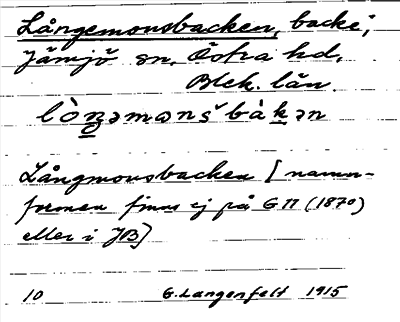 Långemonsbacken, backe;
Jämjö sn. Östra hd.
Blek. län.
lòŋəmənsˇbàkən
Långmonsbacken [namn-
formen finns ej på GM (1870)
eller i JB]
10 G. Langenfelt 1915